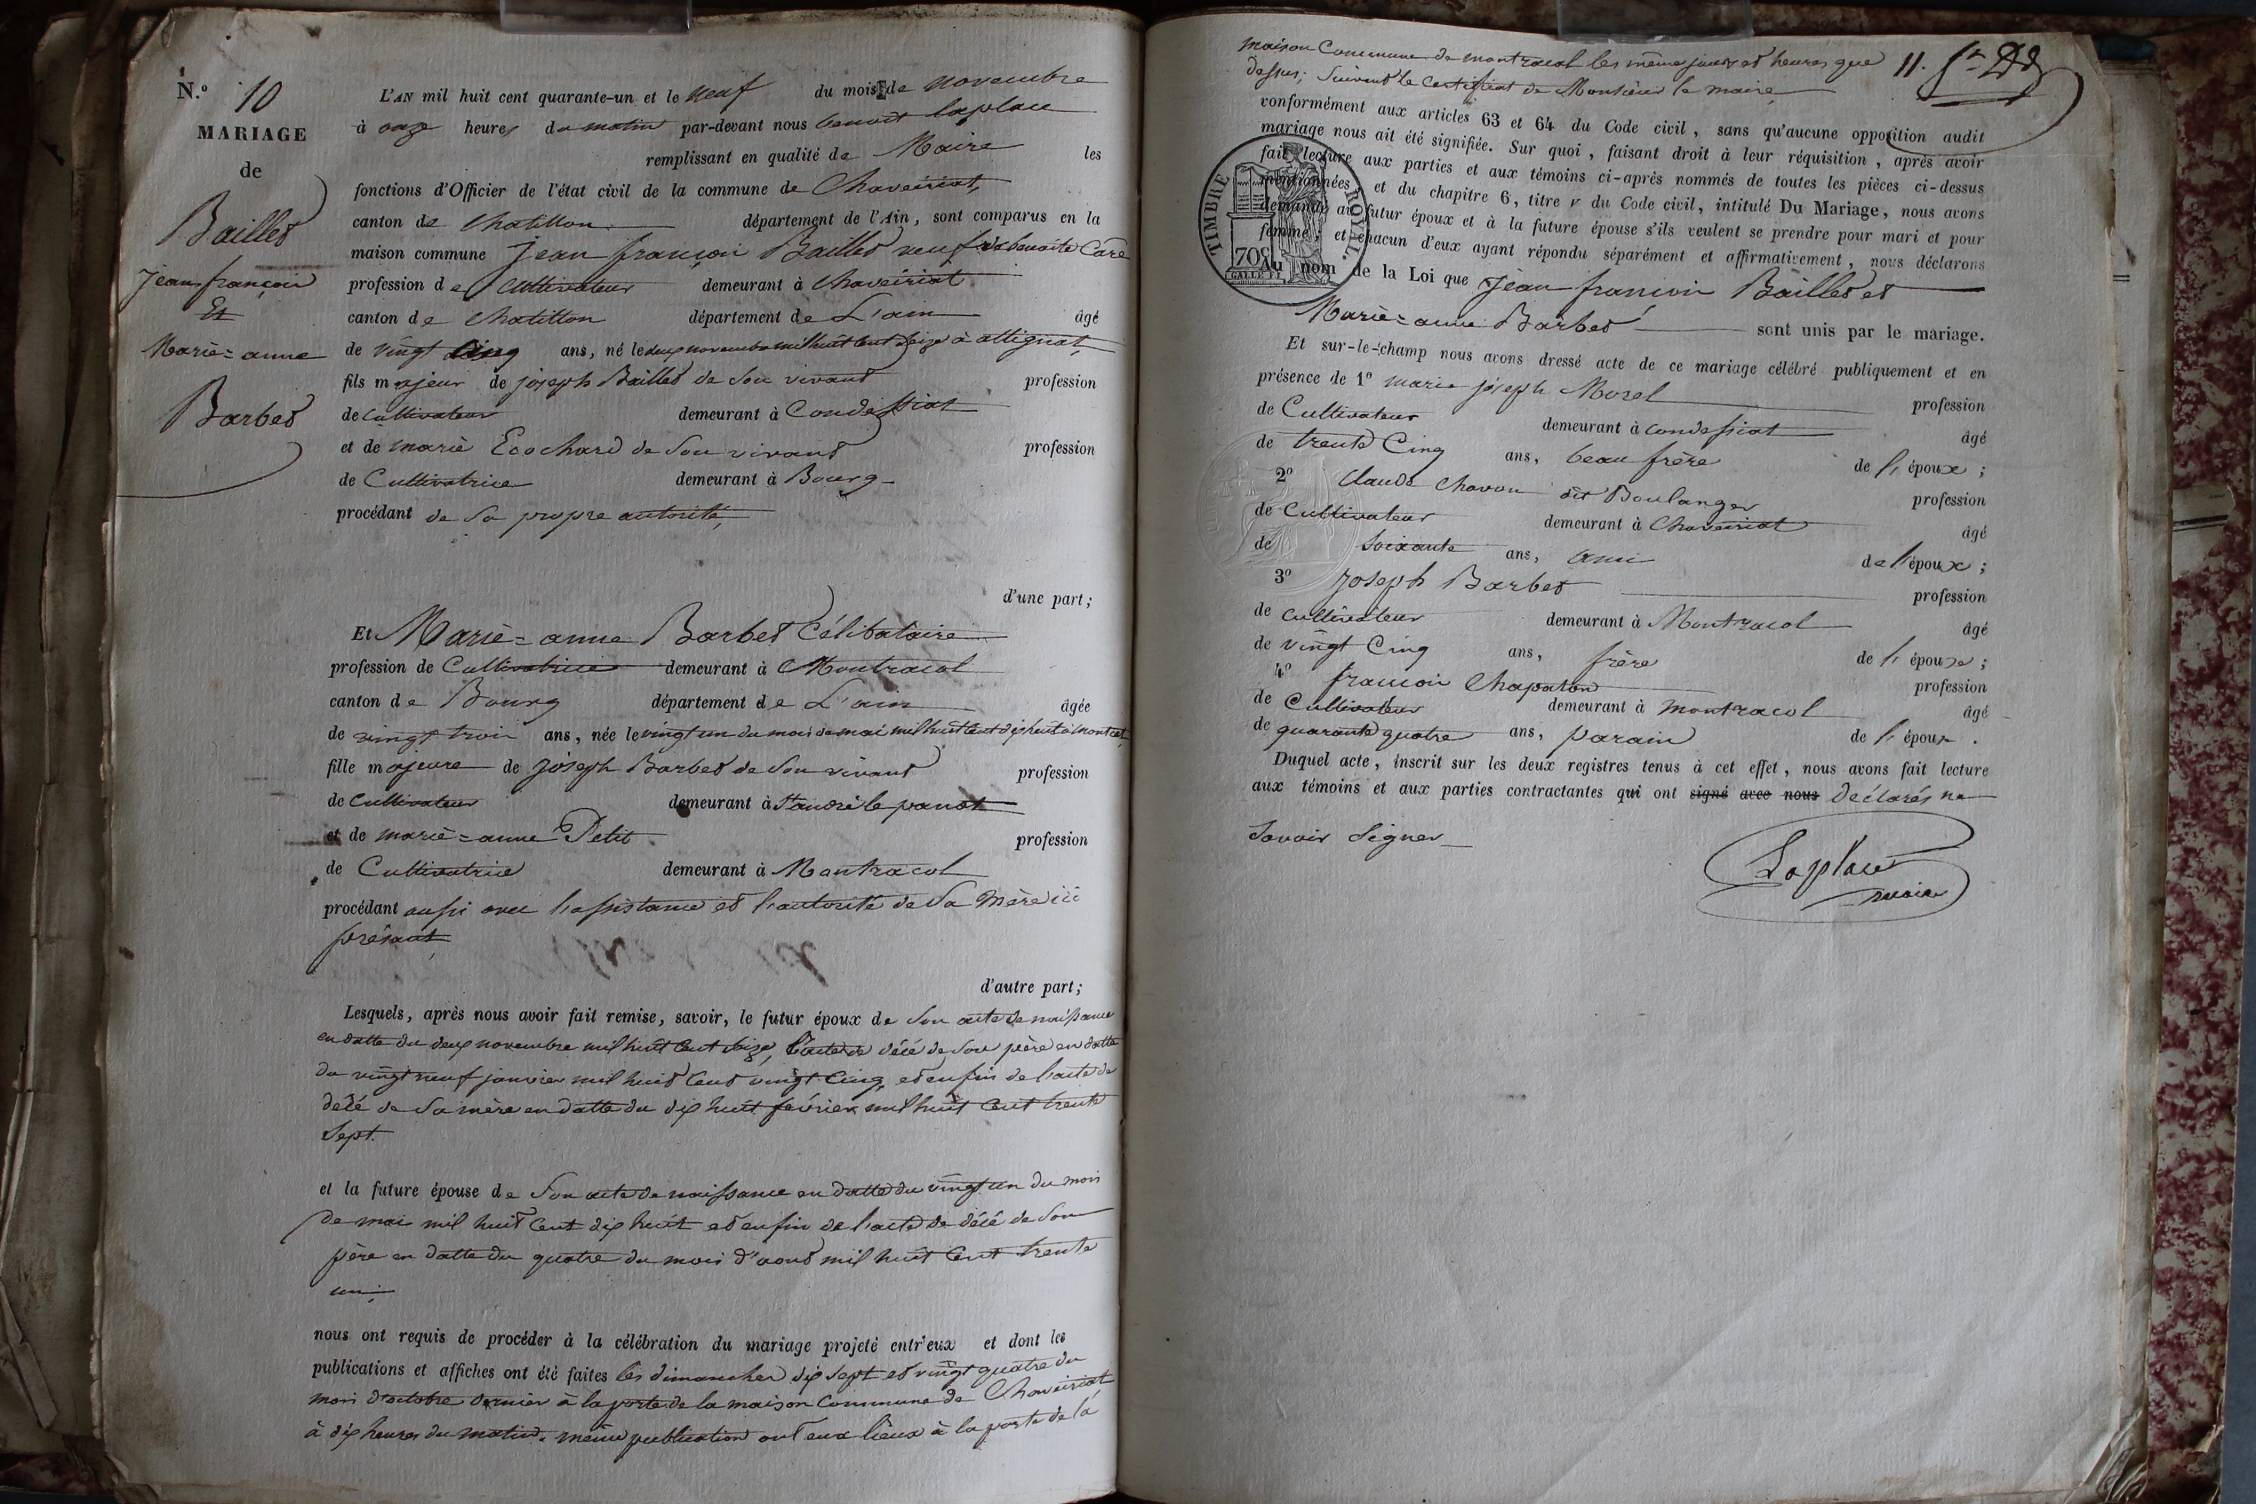 N.º 10
MARIAGE
de
Baillet
jean françois
Et
Marie=anne
Barbet
L'AN mil huit cent quarante-un et le neuf du mois de novembre
à onze heures du matin par-devant nous benoit laplace
remplissant en qualité de Maire les
fonctions d'Officier de l'état civil de la commune de Chaveiriat,
canton de Chatillon département de l'Ain, sont comparus en la
maison commune jean françois Baillet veuf de benoite Care
profession de Cultivateur demeurant à Chaveiriat
canton de Chatillon département de L'ain âgé
de vingt cinq ans, né le deux novembre mil huit cent seize à attignat,
fils majeur de joseph Baillet de son vivant profession
de Cultivateur demeurant à Condeissiat
et de marie Ecochard de son vivant profession
de Cultivatrice demeurant à Bourg
procédant de sa propre autorité,
d'une part;
Et Marie=anne Barbet Célibataire
profession de Cultivatrice demeurant à Montracol
canton de Bourg département de L'ain âgée
de vingt trois ans, née le vingt un du mois de mai mil huit cent dix huit à mont col
fille majeure de joseph Barbet de son vivant profession
de Cultivateur demeurant à St andré le panot
et de marie=anne Petit profession
de Cultivatrice demeurant à Montracol
procédant aussi avec l'assistance et l'autorité de sa mère ici
présant,
d'autre part;
Lesquels, après nous avoir fait remise, savoir, le futur époux de son acte de naissance
en datte du deux novembre mil huit cent seize, l'acte de décé de son père en datte
du vingt neuf janvier mil huit cent vingt cinq, et enfin de l'acte de
décé de sa mère en datte du dix huit février mil huit cent trente
sept.
et la future épouse de son acte de naissance en datte du vingt un du mois
de mai mil huit cent dix huit et enfin de l'acte de décé de son
père en datte du quatre du mois d'aout mil huit cent trente
un;
nous ont requis de procéder à la célébration du mariage projeté entr'eux et dont les
publications et affiches ont été faites les dimanches dix sept et vingt quatre du
mois d'octobre dernier à la porte de la maison Commune de Chaveiriat
à dix heures du matin. même publication ont eux lieux à la porte de la
maison Commune de montracol les même jours et heures que
dessus; Suivant le Certificat de Monsieur le maire
11.
conformément aux articles 63 et 64 du Code civil, sans qu'aucune opposition audit
mariage nous ait été signifiée. Sur quoi, faisant droit à leur réquisition, après avoir
fait lecture aux parties et aux témoins ci-après nommés de toutes les pièces ci-dessus
mentionnées, et du chapitre 6, titre v du Code civil, intitulé Du Mariage, nous avons
demandé au futur époux et à la future épouse s'ils veulent se prendre pour mari et pour
femme, et chacun d'eux ayant répondu séparément et affirmativement, nous déclarons
Au nom de la Loi que jean françois Baillet et
Marie=anne Barbet sont unis par le mariage.
TIMBRE ROYAL.
70c
Et sur-le-champ nous avons dressé acte de ce mariage célébré publiquement et en
présence de 1º marie joseph Morel profession
de Cultivateur demeurant à condeissiat âgé
de trente Cinq ans, beau frère de l'époux;
2º Claude Chavou dit Boulanger profession
de Cultivateur demeurant à Chaveiriat âgé
de soixante ans, ami de l'époux;
3º joseph Barbet profession
de cultivateur demeurant à Montracol âgé
de vingt Cinq ans, frère de l'épouse;
4º françois Chapaton profession
de Cultivateur demeurant à montracol âgé
de quarante quatre ans, parain de l'époux.
Duquel acte, inscrit sur les deux registres tenus à cet effet, nous avons fait lecture
aux témoins et aux parties contractantes qui ont signé avec nous déclarés ne
savoir signer
Laplace
maire